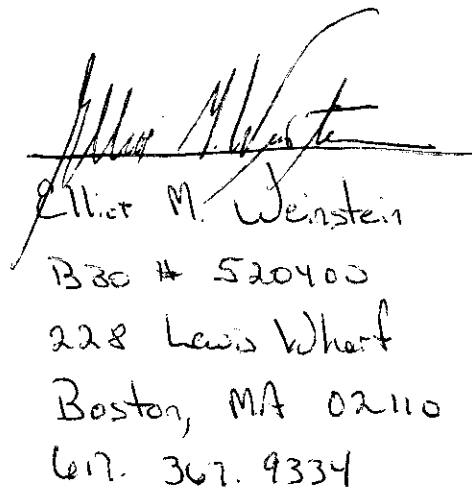 Elliot M. Weinstein
Elliot M. Weinstein
BBO # 520400
228 Lewis Wharf
Boston, MA 02110
617. 367. 9334